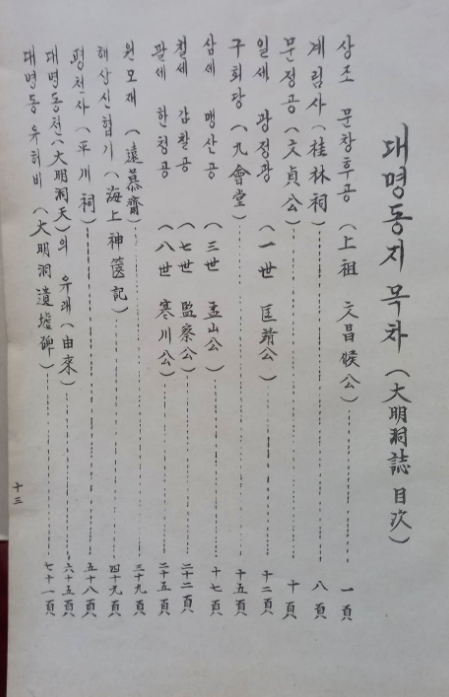 대명동지 목차 (大明洞誌 目次)
상조 문창후공 (上祖 文昌候公) 一頁
계림사 (桂林祠) 八頁
문정공 (文貞公) 十頁
일세 광정공 (一世 匡靖公) 十二頁
구회당 (九會堂) 十五頁
삼세 맹산공 (三世 孟山公) 十七頁
칠세 감찰공 (七世 監察公) 二十二頁
팔세 한천공 (八世 寒川公) 二十五頁
원모재 (遠慕齋) 三十九頁
해상신협기 (海上神篋記) 四十九頁
평천사 (平川祠) 五十八頁
대명동천 (大明洞天)의 유래 (由來) 六十五頁
대명동 유허비 (大明洞遺墟碑) 七十一頁
十三